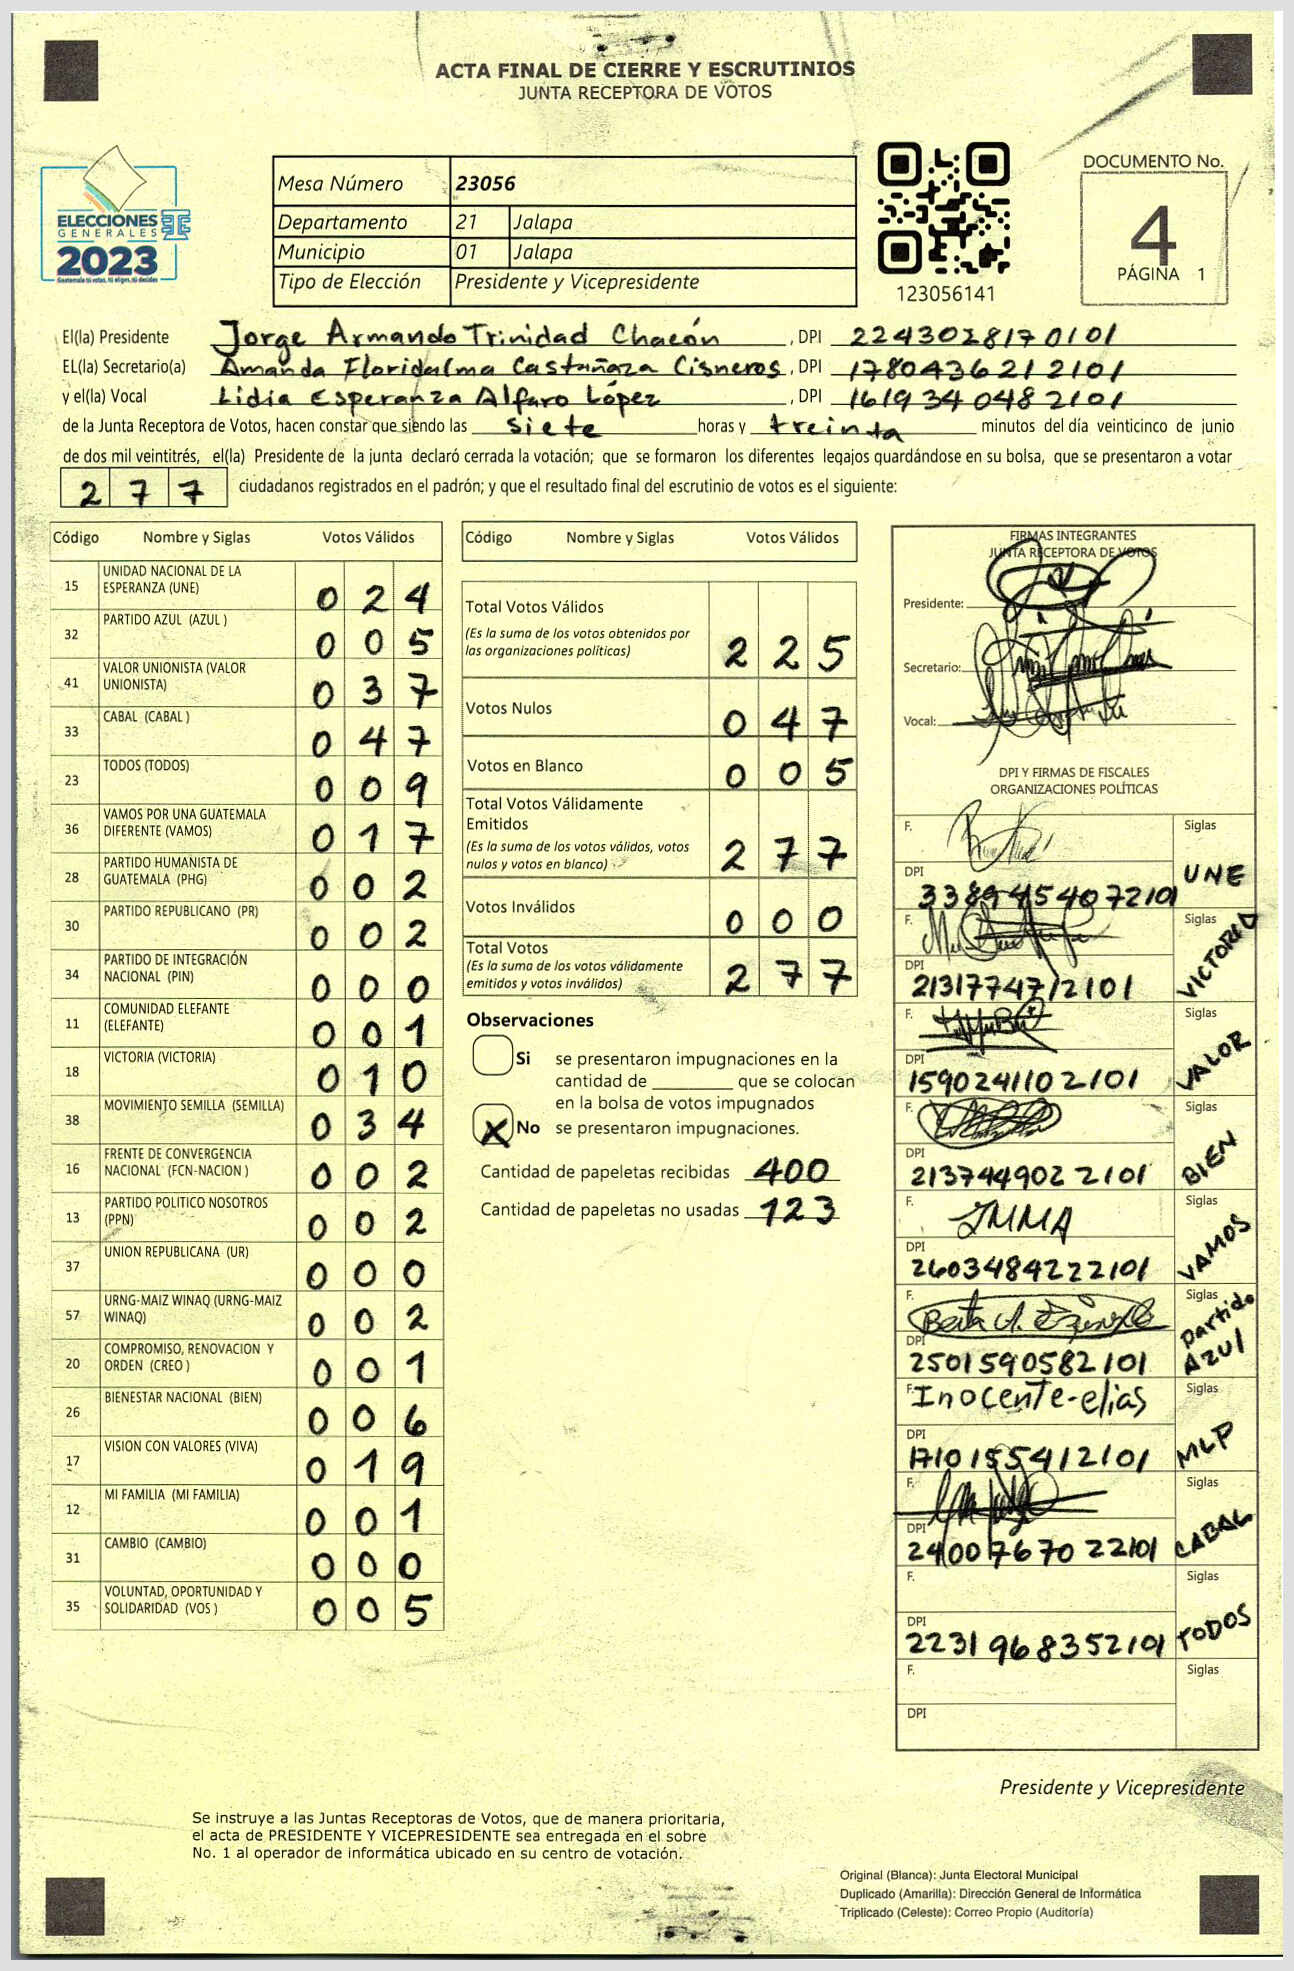 ACTA FINAL DE CIERRE Y ESCRUTINIOS
JUNTA RECEPTORA DE VOTOS
ELECCIONES
GENERALES
2023
Guatemala tú votas, tú eliges, tú decides
Mesa Número 23056
Departamento 21 Jalapa
Municipio 01 Jalapa
Tipo de Elección Presidente y Vicepresidente
123056141
DOCUMENTO No.
4
PÁGINA 1
El(la) Presidente Jorge Armando Trinidad Chacón, DPI 2243028170101
EL(la) Secretario(a) Amanda Floridalma Castañaza Cisneros, DPI 1780436212101
y el(la) Vocal Lidia Esperanza Alfaro López, DPI 1619340482101
de la Junta Receptora de Votos, hacen constar que siendo las siete horas y treinta minutos del día veinticinco de junio
de dos mil veintitrés, el(la) Presidente de la junta declaró cerrada la votación; que se formaron los diferentes legajos guardándose en su bolsa, que se presentaron a votar
277 ciudadanos registrados en el padrón; y que el resultado final del escrutinio de votos es el siguiente:
Código Nombre y Siglas Votos Válidos
15 UNIDAD NACIONAL DE LA ESPERANZA (UNE) 024
32 PARTIDO AZUL (AZUL ) 005
41 VALOR UNIONISTA (VALOR UNIONISTA) 037
33 CABAL (CABAL ) 047
23 TODOS (TODOS) 009
36 VAMOS POR UNA GUATEMALA DIFERENTE (VAMOS) 017
28 PARTIDO HUMANISTA DE GUATEMALA (PHG) 002
30 PARTIDO REPUBLICANO (PR) 002
34 PARTIDO DE INTEGRACIÓN NACIONAL (PIN) 000
11 COMUNIDAD ELEFANTE (ELEFANTE) 001
18 VICTORIA (VICTORIA) 010
38 MOVIMIENTO SEMILLA (SEMILLA) 034
16 FRENTE DE CONVERGENCIA NACIONAL (FCN-NACION ) 002
13 PARTIDO POLITICO NOSOTROS (PPN) 002
37 UNION REPUBLICANA (UR) 000
57 URNG-MAIZ WINAQ (URNG-MAIZ WINAQ) 002
20 COMPROMISO, RENOVACION Y ORDEN (CREO ) 001
26 BIENESTAR NACIONAL (BIEN) 006
17 VISION CON VALORES (VIVA) 019
12 MI FAMILIA (MI FAMILIA) 001
31 CAMBIO (CAMBIO) 000
35 VOLUNTAD, OPORTUNIDAD Y SOLIDARIDAD (VOS ) 005
Código Nombre y Siglas Votos Válidos
Total Votos Válidos 225
(Es la suma de los votos obtenidos por
las organizaciones políticas)
Votos Nulos 047
Votos en Blanco 005
Total Votos Válidamente
Emitidos
(Es la suma de los votos válidos, votos
nulos y votos en blanco) 277
Votos Inválidos 000
Total Votos
(Es la suma de los votos válidamente
emitidos y votos inválidos) 277
Observaciones
Si se presentaron impugnaciones en la
cantidad de ________ que se colocan
en la bolsa de votos impugnados
X No se presentaron impugnaciones.
Cantidad de papeletas recibidas 400
Cantidad de papeletas no usadas 123
FIRMAS INTEGRANTES
JUNTA RECEPTORA DE VOTOS
Presidente:
Secretario:
Vocal:
DPI Y FIRMAS DE FISCALES
ORGANIZACIONES POLÍTICAS
F. Siglas
DPI 3389454072101 UNE
F. Siglas
DPI 2131774712101 VICTORIA
F. Siglas
DPI 1590241102101 VALOR
F. Siglas
DPI 2137449022101 BIEN
F. Siglas
DPI 2603484222101 VAMOS
F. Siglas
DPI 2501590582101 Partido AZUL
F. Inocente-elias Siglas
DPI 1710155412101 MLP
F. Siglas
DPI 2400767022101 CABAL
F. Siglas
DPI 2231968352101 TODOS
F. Siglas
DPI
Presidente y Vicepresidente
Se instruye a las Juntas Receptoras de Votos, que de manera prioritaria,
el acta de PRESIDENTE Y VICEPRESIDENTE sea entregada en el sobre
No. 1 al operador de informática ubicado en su centro de votación.
Original (Blanca): Junta Electoral Municipal
Duplicado (Amarilla): Dirección General de Informática
Triplicado (Celeste): Correo Propio (Auditoría)